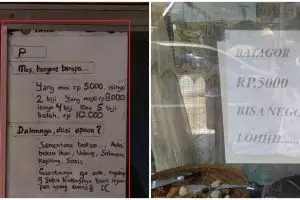 P
Mas, harganya berapa...
Yang mini rp 5000, isinya
2 biji. Yang maxi rp 8000
isinya 4 biji. Mau 5 biji
boleh, rp 10.000
Dalamnya, diisi apaan?
Sementara bakso... Ada
bakso ikan, Udang, Salmon,
kepiting, Sosis
BATAGOR
RP.5000
BISA NEGO
LOHHH......